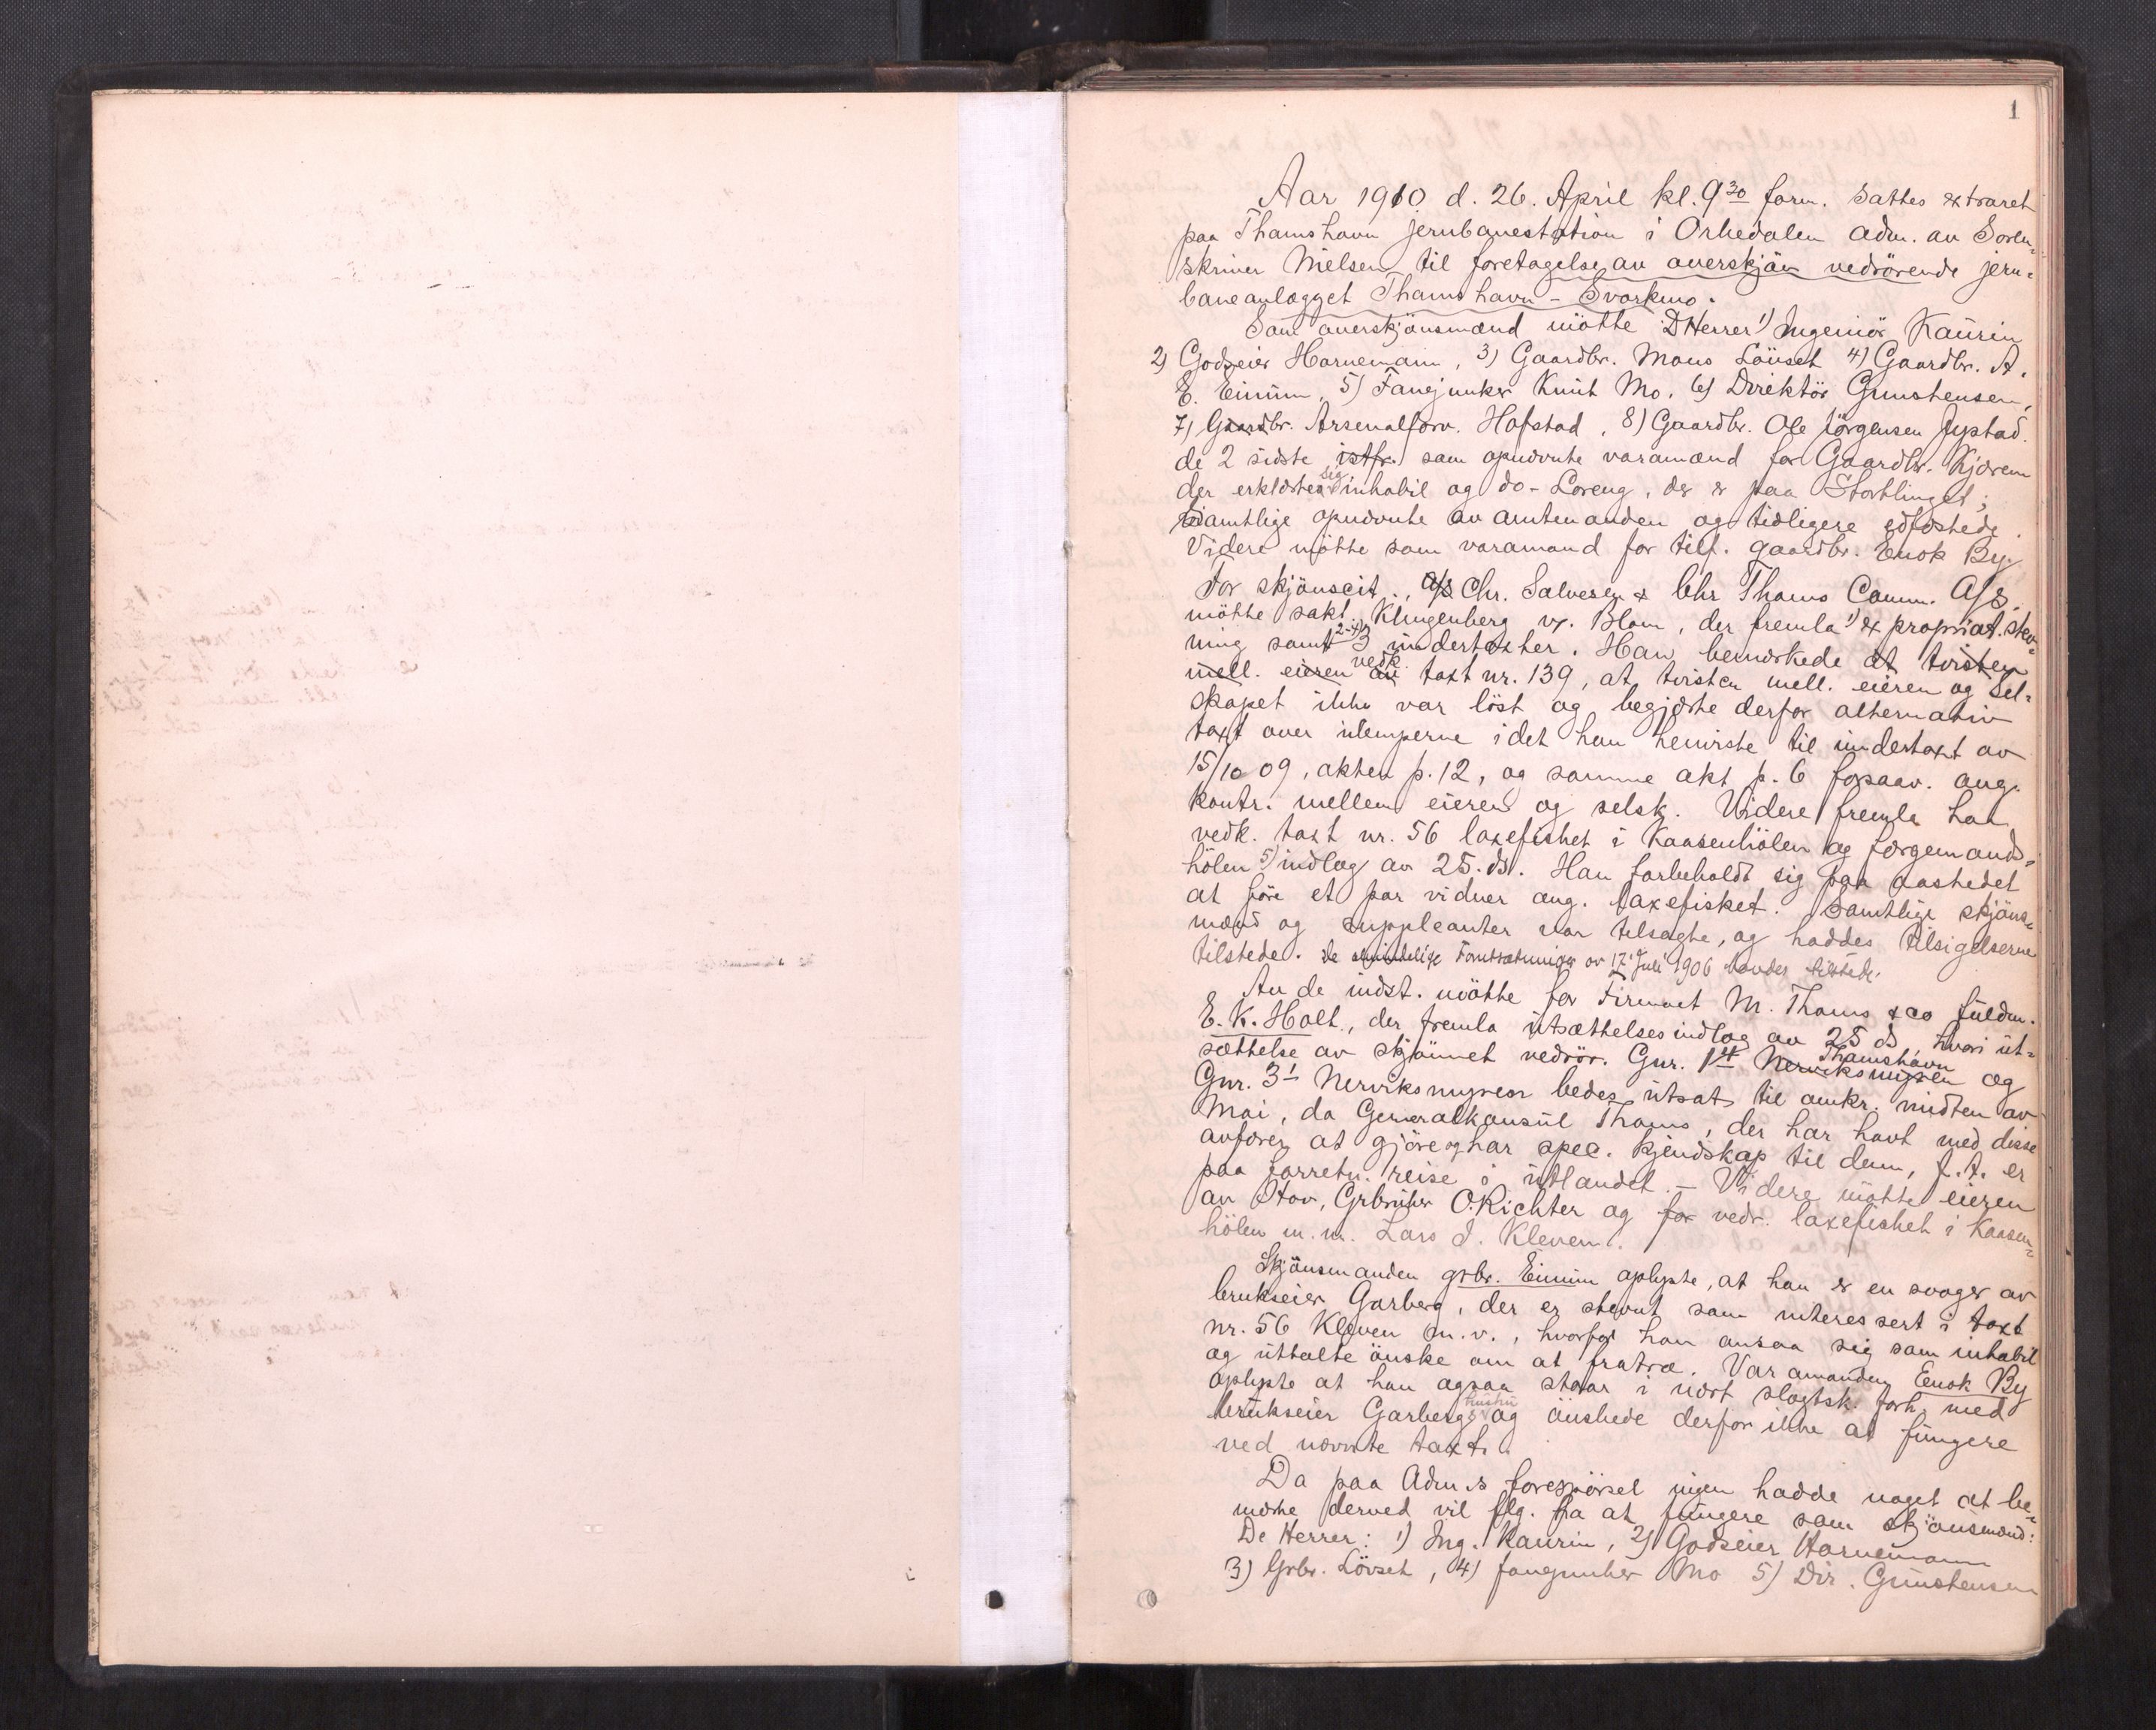 1
Aar 1910 d. 26. April kl. 9³⁰ form. sattes extraret
paa Thamshavn jernbanestation i Orkedalen adm. av Soren-
skriver Nielsen til foretagelse av overskjøn vedrørende jern-
baneanlægget Thamshavn - Svorkmo.
Som overskjønsmænd møtte D'Herrer 1) Ingeniør Kaurin
2) Godseier Hornemann, 3) Gaardbr. Mons Løvset 4) Gaardbr. A.
E. Einum, 5) Fanejunker Knut Mo, 6) Direktør Gunstensen,
7) Gaardbr. Arsenalforv. Hofstad, 8) Gaardbr. Ole Jørgensen
de 2 sidste istf. som opnævnte varamænd for Gaardbr. Kjøren
der erklærtes sig inhabil og do- Loreng, der er paa Storthinget;
Samtlige opnævnte av amtmanden og tidligere edfæstede.
Videre møtte som varamand for tilf. gaardbr. Enok By.
For skjønseit., A/S Chr. Salvesen & Chr Thams Comm. A/S.
møtte sakf. Klingenberg v. Blom, der fremla 1) expropriat. stev-
ning samt 2-4) 3 undertakster. Han bemærkede at tvisten
mell. eieren av vedk. takst nr. 139, at tvisten mell. eieren og sel-
skapet ikke var løst og begjærte derfor alternativ
taxt over ulemperne idet han henviste til undertaxt av
15/10 09, akten p. 12, og samme akt p. 6 forsaav. ang.
kontr. mellem eieren og selsk. Videre fremla han
vedk. taxt nr. 56 laxefisket i Kaasenhölen og Færgemands-
hölen 5) indlæg av 25. ds. Han forbeholdt sig paa aastedet
at føre et par vidner ang. laxefisket. Samtlige skjøns-
mænd og suppleanter var tilsagte, og haddes tilsigelserne
tilstede. De almindelige Forutsætninger av 17. Juli 1906 havdes tilstede.
Av de indst. møtte for Firmaet M. Thams & co fuldm.
E. K. Holt, der fremla utsættelsesindlæg av 25 ds, hvori ut-
sættelse av skjønnet vedrør. Gnr. 1 Nerviksmyren Thamshavn og
Gnr. 3¹ Nerviksmyren bedes utsat til omkr. midten av
Mai, da Generalkonsul Thams, der har havt med disse
avfører at gjøre og har spec. kjendskap til dem, f.t. er
paa forretn. reise i utlandet. - Videre møtte eieren
av Hov, Grbruker O. Richter og for vedr. laxefisket i Kaasen-
hölen m.m. Lars J. Kleven.
Skjønsmanden grbr. Einum oplyste, at han er en svoger av
brukseier Garberg, der er stevnt som interessert i taxt
nr. 56 Kleven m.v., hvorfor han ansaa sig som inhabil
og uttalte ønske om at fratræ. Varamanden Enok By
oplyste at han ogsaa staar i nært slægtsk. forh. med
brukseier Garbergs hustru og ønskede derfor ikke at fungere
ved nævnte taxt.
Da paa Adm.s forespørsel ingen hadde noget at be-
mærke derved vil flg. fra at fungere som skjønsmænd:
De Herrer: 1) Ing. Kaurin, 2) Godseier Hornemann
3) Grbr. Løvset, 4) fanejunker Mo 5) Dir. Gunstensen